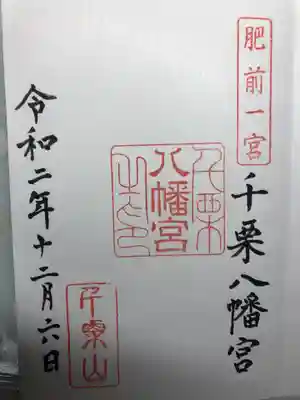 肥前一宮
千栗八幡宮
千栗八幡宮之印
令和二年十二月六日
千栗山